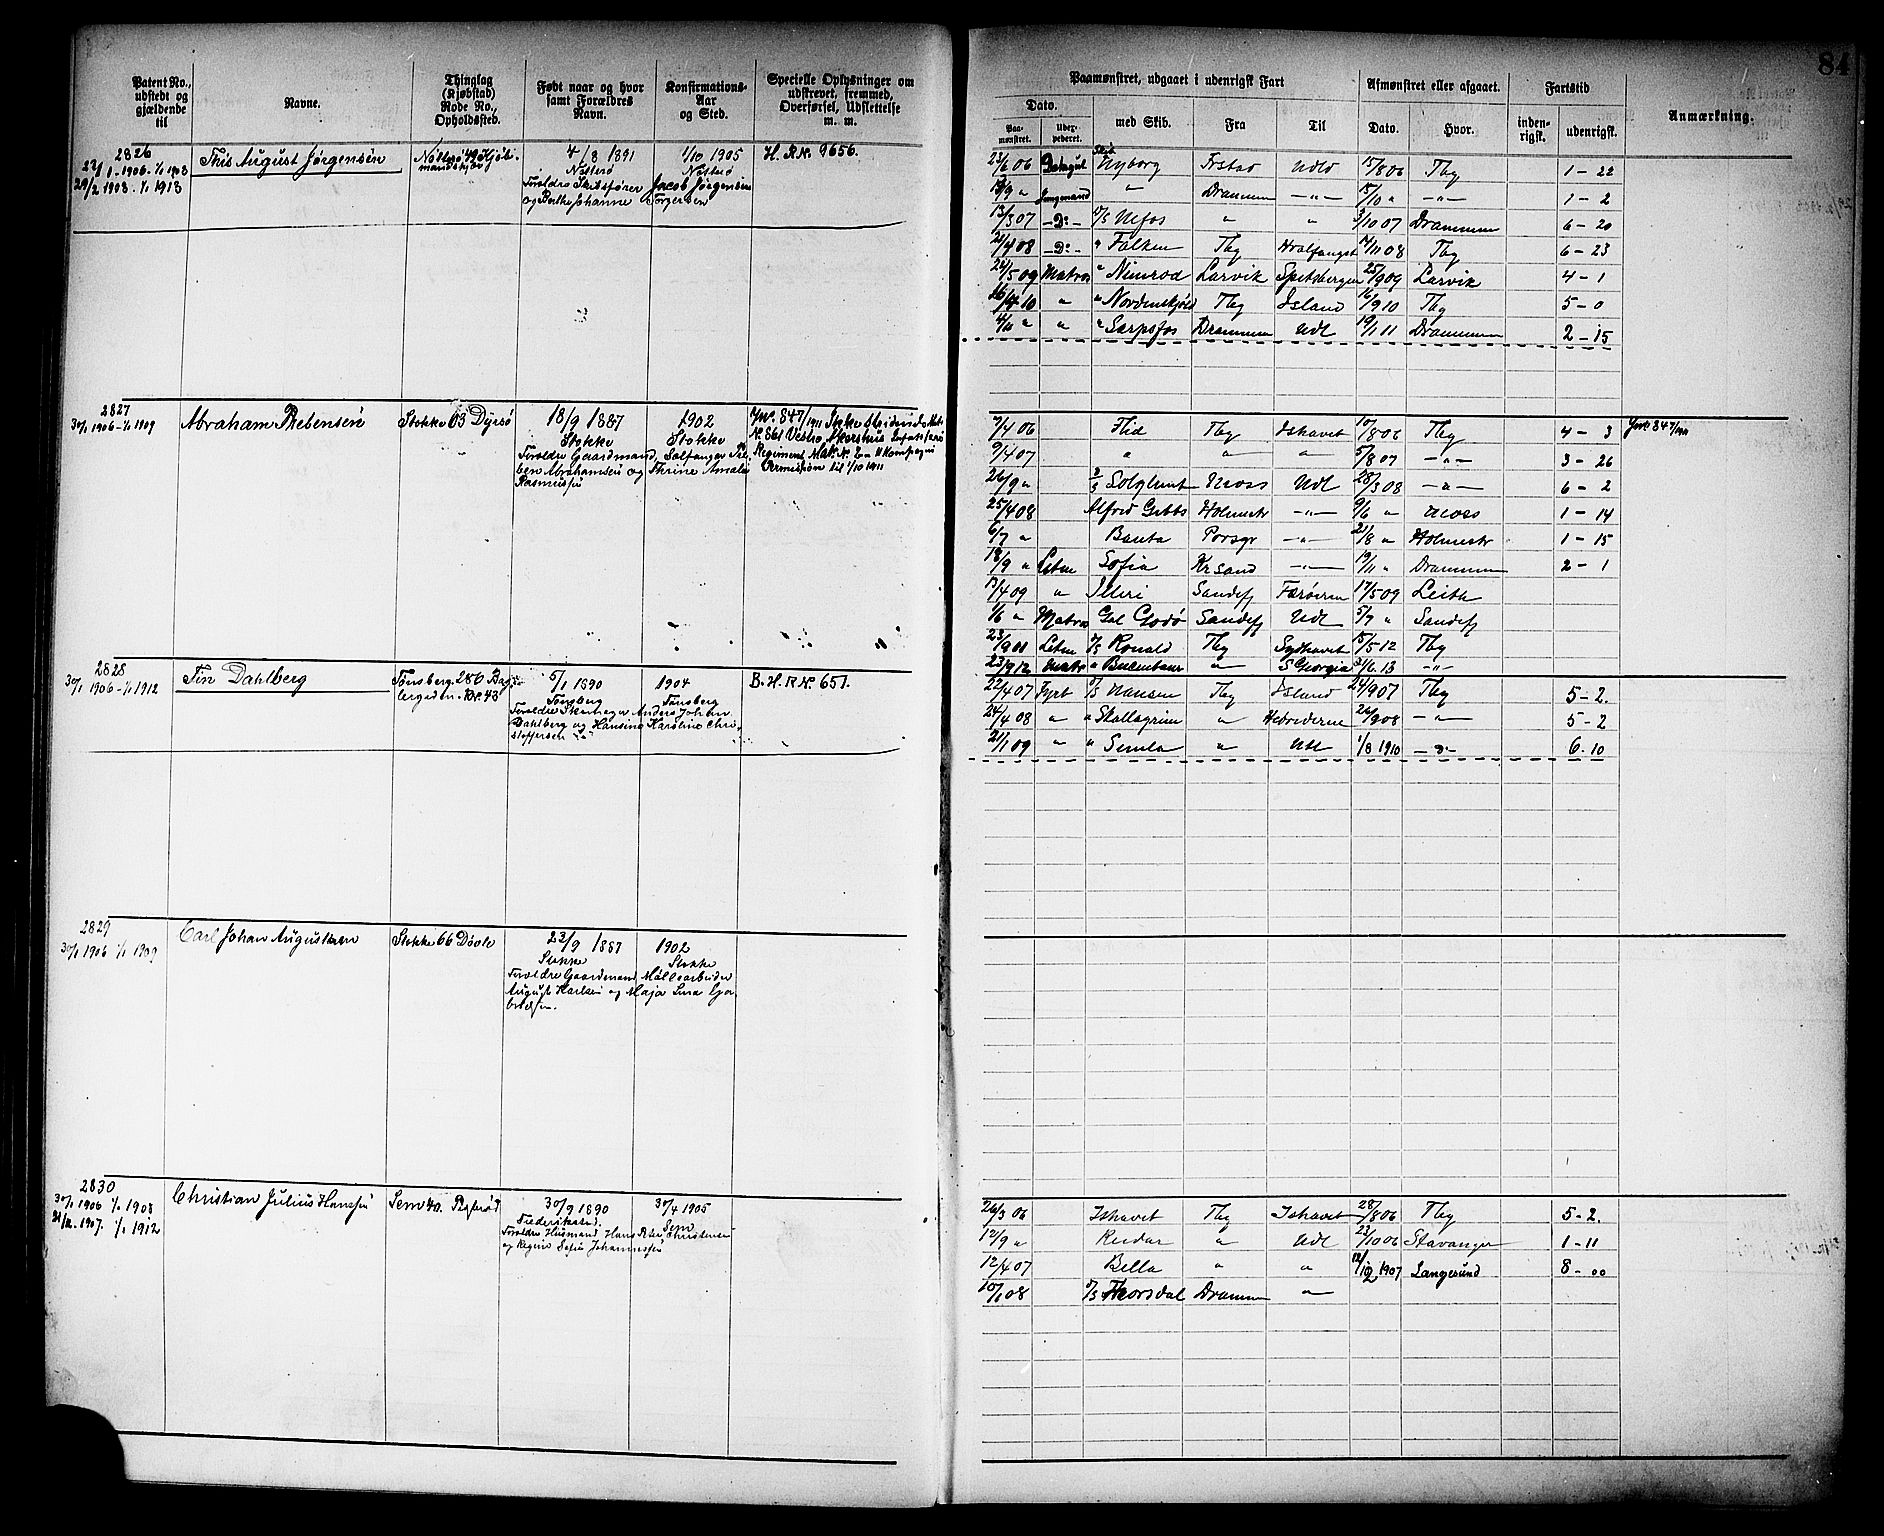 84
Patent No., udstedt og gjældende til
Navne.
Thinglag (Kjøbstad) Rode No., Opholdssteb.
Født naar og hvor samt Forældres Navn.
Konfirmations-Aar og Sted.
Specielle Oplysninger om udskrevet, fremmed, Overførsel, Udslettelse m. m.
Paamønstret, udgaaet i udenrigsk Fart
Afmønstret eller afgaaet.
Fartstid
Anmærkning.
Dato.
med Skib.
Fra
Til
Dato.
Hvor.
inden-rigsk.
udenrigsk.
Paa-mønstret.
2826
22/1 - 1906 - 1/1 1908
29/2 1908 - 1/1 1913
This August Jørgensen
Nøtterø 49
4/8 1891
Nøtterø
Forældre Skibsfører Jacob Jørgensen
og Berthe Johanne Torgersen
1/10 1905
Nøtterø
H. R. No. 9656.
23/6 06 Nyborg Frstad Udld 15/8 06 Tbg 1 - 22
13/9 " Jungmand " Drammen -"- 15/10 " -"- 1 - 2
13/3 07 -D:- D/S Ulefos " " 3/10 07 Drammen 6 - 20
21/4 08 -D:- " Falken Tbg Hvalfangst 14/11 08 Tbg 6 - 23
24/5 09 Matros " Nimrod Larvik Spitsbergen 25/9 09 Larvik 4 - 1
16/4 10 " " Nordenskjöld Tbg Island 16/9 10 Tbg 5 - 0
4/11 " " " Sarpsfos Drammen Udl 19/1 11 Drammen 2 - 15
2827
30/1 1906 - 1/1 1909
Abraham Prebensen
Stokke 63 Dyrsø
18/9 1887
Stokke
Forældre Gaardmand, Sælfanger Pre-
ben Abrahamsen og Thrine Amalie
Rasmussen
1902
Stokke
Jnr. 847/1911
Regiment
Permission til 1/10 1911
7/4 06 Flid Tbg Ishavet 10/8 06 Tbg 4 - 3
9/4 07 " " " 5/8 07 -"- 3 - 26
26/9 " Solglimt Moss Udl 28/3 08 -"- 6 - 2
25/4 08 Alfred Gibbs Holmestr -"- 9/6 " Moss 1 - 14
6/7 " Banta Porsgr -"- 21/8 " Holmestr 1 - 15
18/9 " Letm Sofia Krsand -"- 19/11 " Drammen 2 - 1
13/4 09 " Sandefj Færøerne 17/5 09 Leith
1/6 " Matros Gal Godø Sandefj Udl 5/7 " Sandefj
23/9 011 Letm D/S Ronald Tbg Sydhavet 15/5 12 Tbg
23/9 12 Matr " Bucentaur " S Georgia 3/6 13 -"-
Jnr 847/1911
2828
30/1 1906 - 1/1 1912
Finn Dahlberg
Tønsberg 280
5/1 1890
Tønsberg
Forældre Skomager Anders Johan
Dahlberg og Hansine Karoline Chri-
stoffersen
1904
Tønsberg
B. H. R. No. 651.
22/4 07 Fyrb D/S Hansen Tbg Island 24/9 07 Tbg 5 - 2.
24/4 08 " " Skallagrim " Hebriderne 26/9 08 -"- 5 - 2
21/1 09 " " Semla " Udl 1/8 1910 -"- 6 - 10
2829
30/1 1906 1/1 1909
Carl Johan Augustsen
Stokke 66 Døvle
23/9 1887
Stokke
Forældre Gaardmand, Møllearbeider
August Karlsen og Maja Lena Gjør-
belsen.
1902
Stokke
2830
30/1 1906 1/1 1908
21/12. 1907. 1/1 1912
Christian Julius Hansen
Sem 40.
30/9 1890
Frederikstad.
Forældre Husmand Hans Peter Christensen
og Regine Sofie Johannessen
30/4 1905
Sem
26/3 06 Ishavet Tbg Ishavet 28/8 06 Tbg 5 - 2.
12/9 " Reidar " Udl 22/10 06 Stavanger 1 - 11
12/4 07 Bella " " 12/12 1907 Langesund 8 - 00
10/1 08 D/S Thorsdal Drammen "